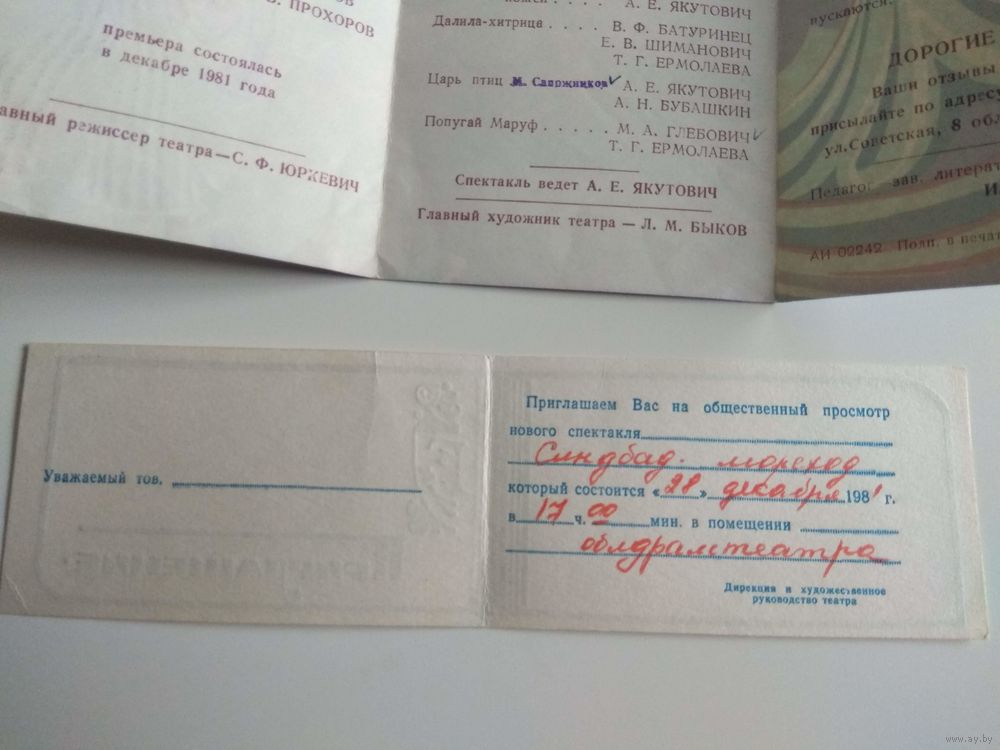 ПРОХОРОВ
премьера состоялась
в декабре 1981 года
режиссер театра—С. Ф. ЮРКЕВИЧ
А. Е. ЯКУТОВИЧ
Далила-хитрица . . . . В. Ф. БАТУРИНЕЦ
Е. В. ШИМАНОВИЧ
Т. Г. ЕРМОЛАЕВА
Царь птиц М. Сапожников А. Е. ЯКУТОВИЧ
А. Н. БУБАШКИН
Попугай Маруф . . . . . М. А. ГЛЕБОВИЧ
Т. Г. ЕРМОЛАЕВА
Спектакль ведет А. Е. ЯКУТОВИЧ
Главный художник театра — Л. М. БЫКОВ
пускаются.
ДОРОГИЕ
Ваши отзывы
присылайте по адресу
ул.Советская, 8
Педагог зав.
АИ 02242 Подп. в
Уважаемый тов.
Приглашаем Вас на общественный просмотр
нового спектакля
Синдбад-мореход
который состоится «28» декабря 1981 г.
в 17 ч. 00 мин. в помещении
облдрамтеатра
Дирекция и художественное
руководство театра
www.ay.by